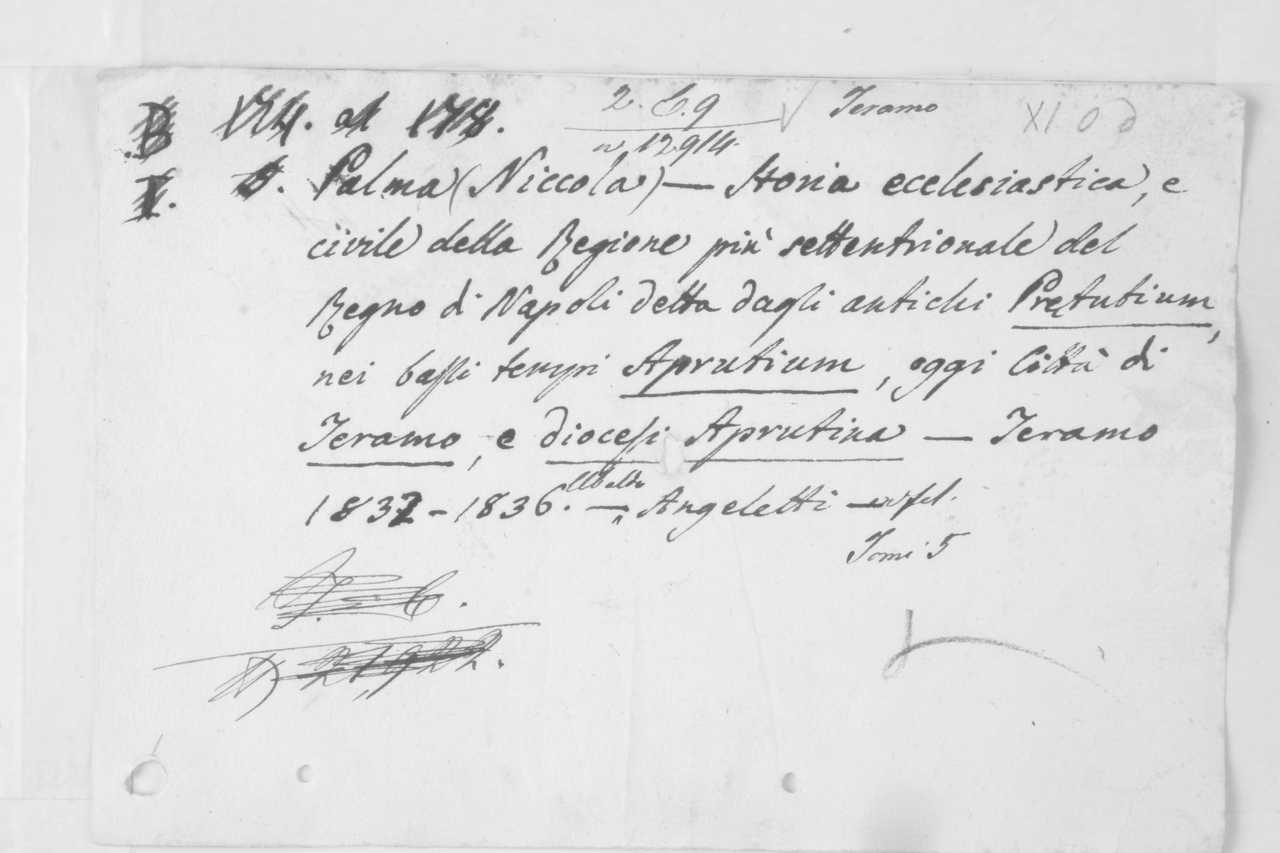 2. C. 9 Teramo XI O d
n. 12914.
Palma (Niccola) — Storia ecclesiastica, e
civile della Regione più settentrionale del
Regno di Napoli detta dagli antichi Prętutium,
nei bassi tempi Aprutium, oggi Città di
Teramo, e diocesi Aprutina — Teramo
1832 - 1836. — Angeletti —
Tomi 5